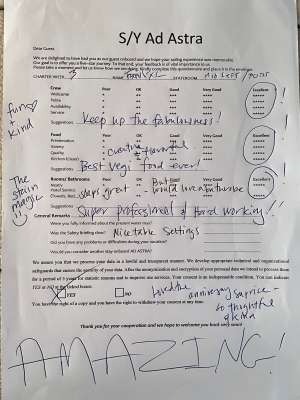 S/Y Ad Astra
Dear Guest,
We are delighted to have had you as our guest onboard and we hope your sailing experience was memorable.
Our goal is to offer you a five-star journey. To that end, your feedback is of vital importance to us.
Please take a moment and let us know how we are doing. Kindly complete this questionnaire and place it in the envelope.
CHARTER WITH NAME STATEROOM Mid Left / Port
Crew Poor OK Good Very Good Excellent
Welcome
Polite
Availability
Service
Suggestions: Keep up the fabulousness!
funny + kind
Food Poor OK Good Very Good Excellent
Presentation
Variety
Quality
creative + flavorful
Suggestions: Best vegi food ever!
The stain magic!!
Rooms/ Bathrooms Poor OK Good Very Good Excellent
Neatly
always great But would love a
Suggestions: Super professional & hard working!!
General Remarks
Were you fully informed about the present water toys?
Was the Safety briefing clear? Nice table settings
Did you have any problems or difficulties during your vacation?
Would you consider another stay onboard AD ASTRA?
We assure you that we process your data in a lawful and transparent manner. We develop appropriate technical and organizational
safeguards that ensure the security of your data. After the anonymization and encryption of your personal data we intend to process them
for a period of 5 years for statistic reasons and to improve our services. Your consent is an independent condition. You can indicate
YES or NO in the below boxes:
X YES NO loved the anniversary surprise - so thoughtful
You have the right of a copy and you have the right to withdraw your consent at any time.
Thank you for your cooperation and we hope to welcome you back very soon!
AMAZING!